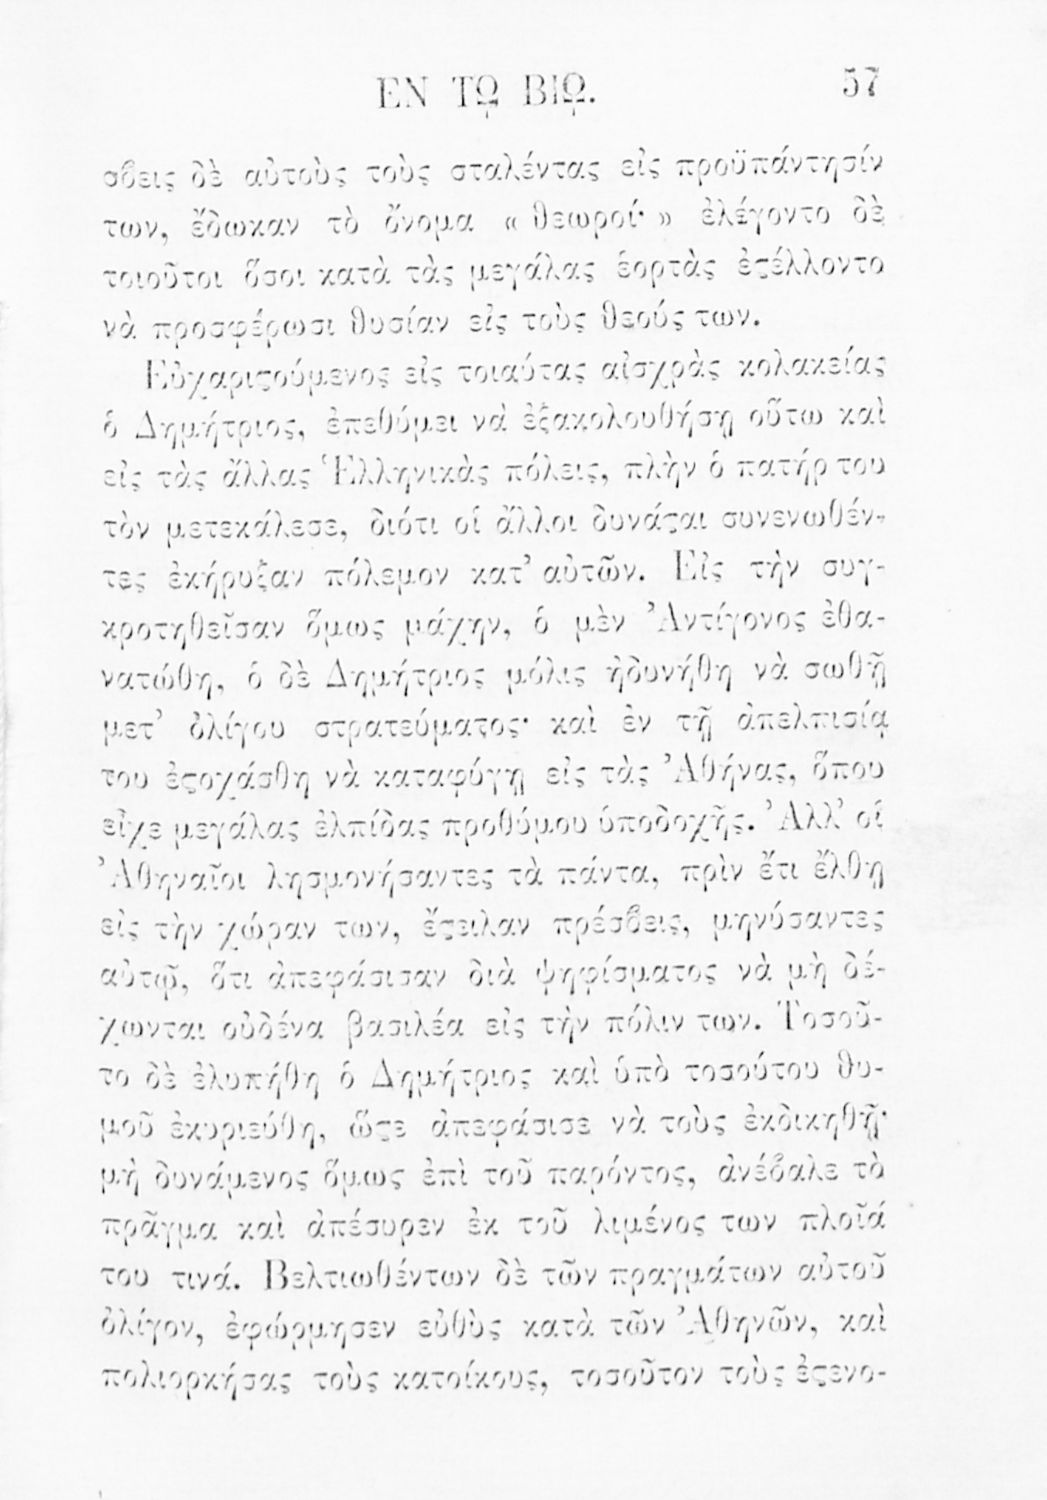 ΕΝ Τῼ ΒΙῼ. 57
σβεις δὲ αὐτοὺς τοὺς σταλέντας εἰς προϋπάντησίν
των, ἔδωκαν τὸ ὄνομα « θεωροί· » ἐλέγοντο δὲ
τοιοῦτοι ὅσοι κατὰ τὰς μεγάλας ἑορτὰς ἐϛέλλοντο
νὰ προσφέρωσι θυσίαν εἰς τοὺς θεούς των.
Εὐχαριϛούμενος εἰς τοιαύτας αἰσχρὰς κολακείας
ὁ Δημήτριος, ἐπεθύμει νὰ ἐξακολουθήσῃ οὕτω καὶ
εἰς τὰς ἄλλας Ἑλληνικὰς πόλεις, πλὴν ὁ πατήρ του
τὸν μετεκάλεσε, διότι οἱ ἄλλοι δυνάϛαι συνενωθέν-
τες ἐκήρυξαν πόλεμον κατ’ αὐτῶν. Εἰς τὴν συγ-
κροτηθεῖσαν ὅμως μάχην, ὁ μὲν Ἀντίγονος ἐθα-
νατώθη, ὁ δὲ Δημήτριος μόλις ἠδυνήθη νὰ σωθῇ
μετ’ ὀλίγου στρατεύματος· καὶ ἐν τῇ ἀπελπισίᾳ
του ἐϛοχάσθη νὰ καταφύγῃ εἰς τὰς Ἀθήνας, ὅπου
εἶχε μεγάλας ἐλπίδας προθύμου ὑποδοχῆς. Ἀλλ’ οἱ
Ἀθηναῖοι λησμονήσαντες τὰ πάντα, πρὶν ἔτι ἔλθῃ
εἰς τὴν χώραν των, ἔϛειλαν πρέσβεις, μηνύσαντες
αὐτῷ, ὅτι ἀπεφάσισαν διὰ ψηφίσματος νὰ μὴ δέ-
χωνται οὐδένα βασιλέα εἰς τὴν πόλιν των. Τοσοῦ-
το δὲ ἐλυπήθη ὁ Δημήτριος καὶ ὑπὸ τοσούτου θυ-
μοῦ ἐκυριεύθη, ὥϛε ἀπεφάσισε νὰ τοὺς ἐκδικηθῇ·
μὴ δυνάμενος ὅμως ἐπὶ τοῦ παρόντος, ἀνέβαλε τὸ
πρᾶγμα καὶ ἀπέσυρεν ἐκ τοῦ λιμένος των πλοῖά
του τινά. Βελτιωθέντων δὲ τῶν πραγμάτων αὐτοῦ
ὀλίγον, ἐφώρμησεν εὐθὺς κατὰ τῶν Ἀθηνῶν, καὶ
πολιορκήσας τοὺς κατοίκους, τοσοῦτον τοὺς ἐϛενο-